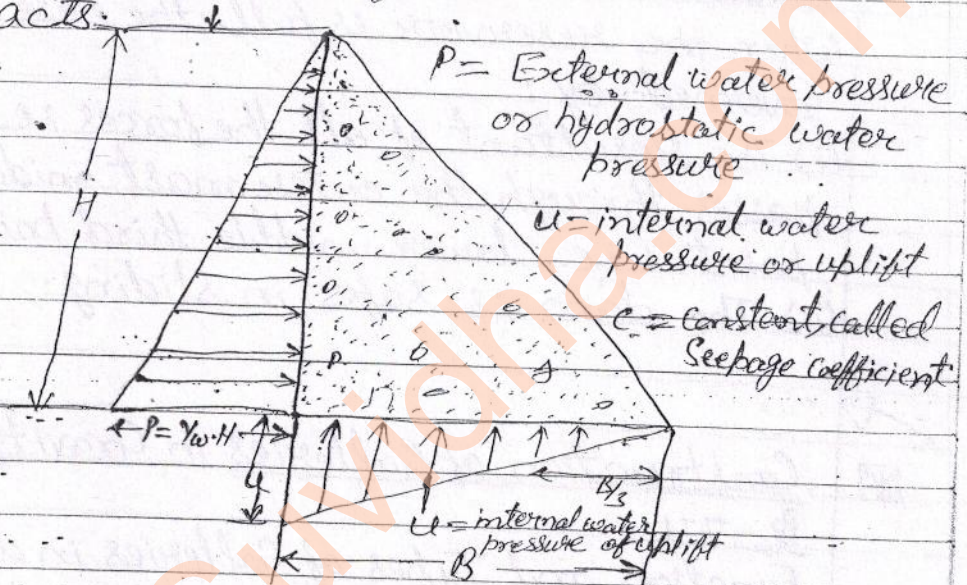 acts.
P = External water pressure
or hydrostatic water
pressure
U - internal water
pressure or uplift
C = constant, called
Seepage coefficient
H
P
P = γw.H
U
B/3
U = internal water
pressure of uplift
B